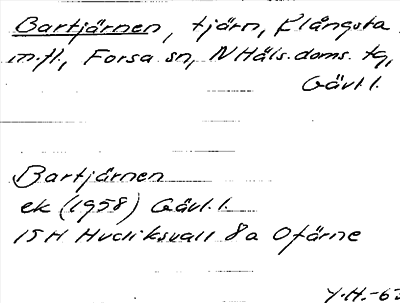 Bartjärnen, tjärn, Flångsta
m.fl., Forsa sn, N Häls. doms. tg,
Gävl. l.
Bartjärnen
ek (1958) Gävl. l.
15H Hudiksvall 8a Ofärne
Y.H.-63